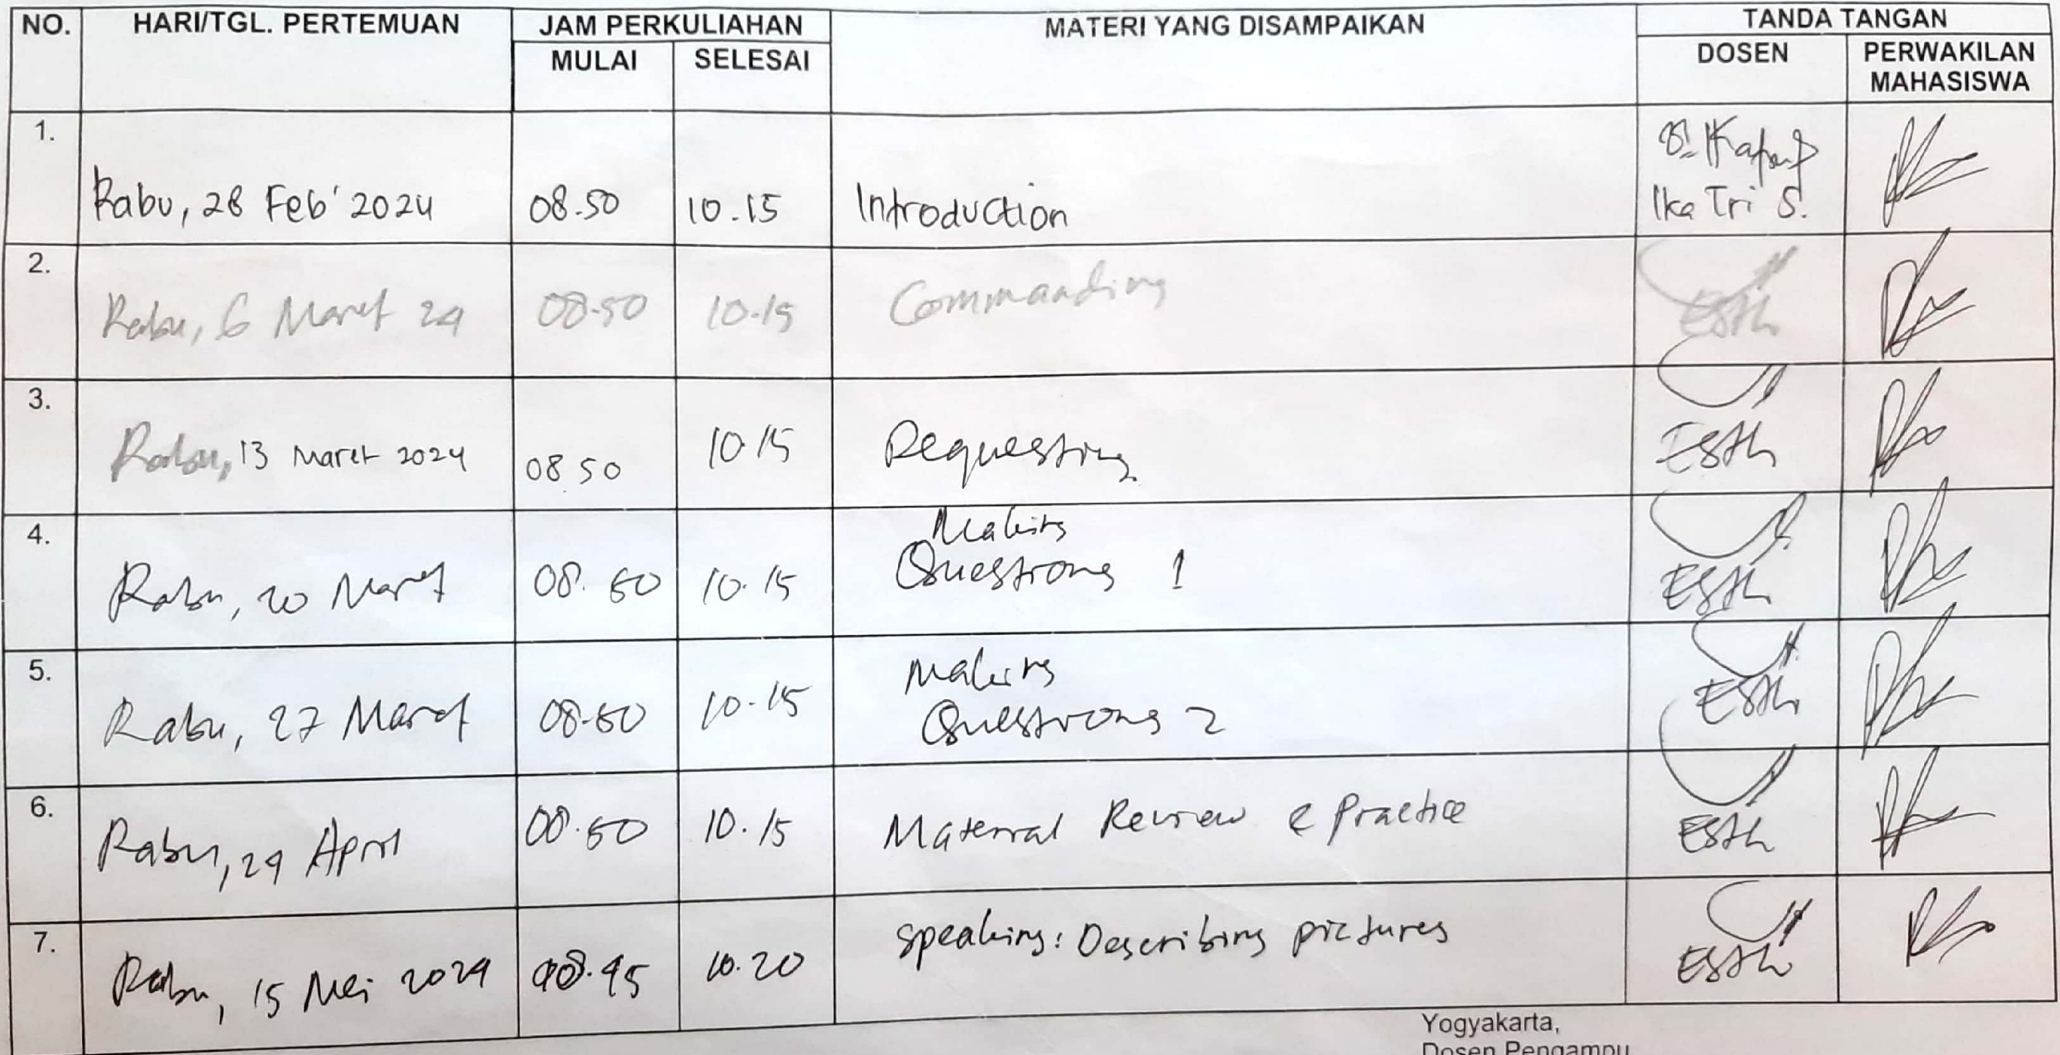 NO. HARI/TGL. PERTEMUAN JAM PERKULIAHAN MATERI YANG DISAMPAIKAN TANDA TANGAN
MULAI SELESAI DOSEN PERWAKILAN
MAHASISWA
1.
Rabu, 28 Feb' 2024 08.50 10.15 Introduction
Ika Tri S.
2.
Rabu, 6 Maret 24 08.50 10.15 Commanding Esth
3.
Rabu, 13 Maret 2024 08 50 10 15 Requesting Esth
4.
Making
Rabu, 20 Maret 08.50 10.15 Questions 1 Esth
5.
Making
Rabu, 27 Maret 08.50 10.15 Questions 2 Esth
6.
Rabu, 24 April 08.50 10.15 Material Review & Practice Esth
7.
Rabu, 15 Mei 2024 08.45 10.20 Speaking: Describing pictures Esth
Yogyakarta,
Dosen Pengampu